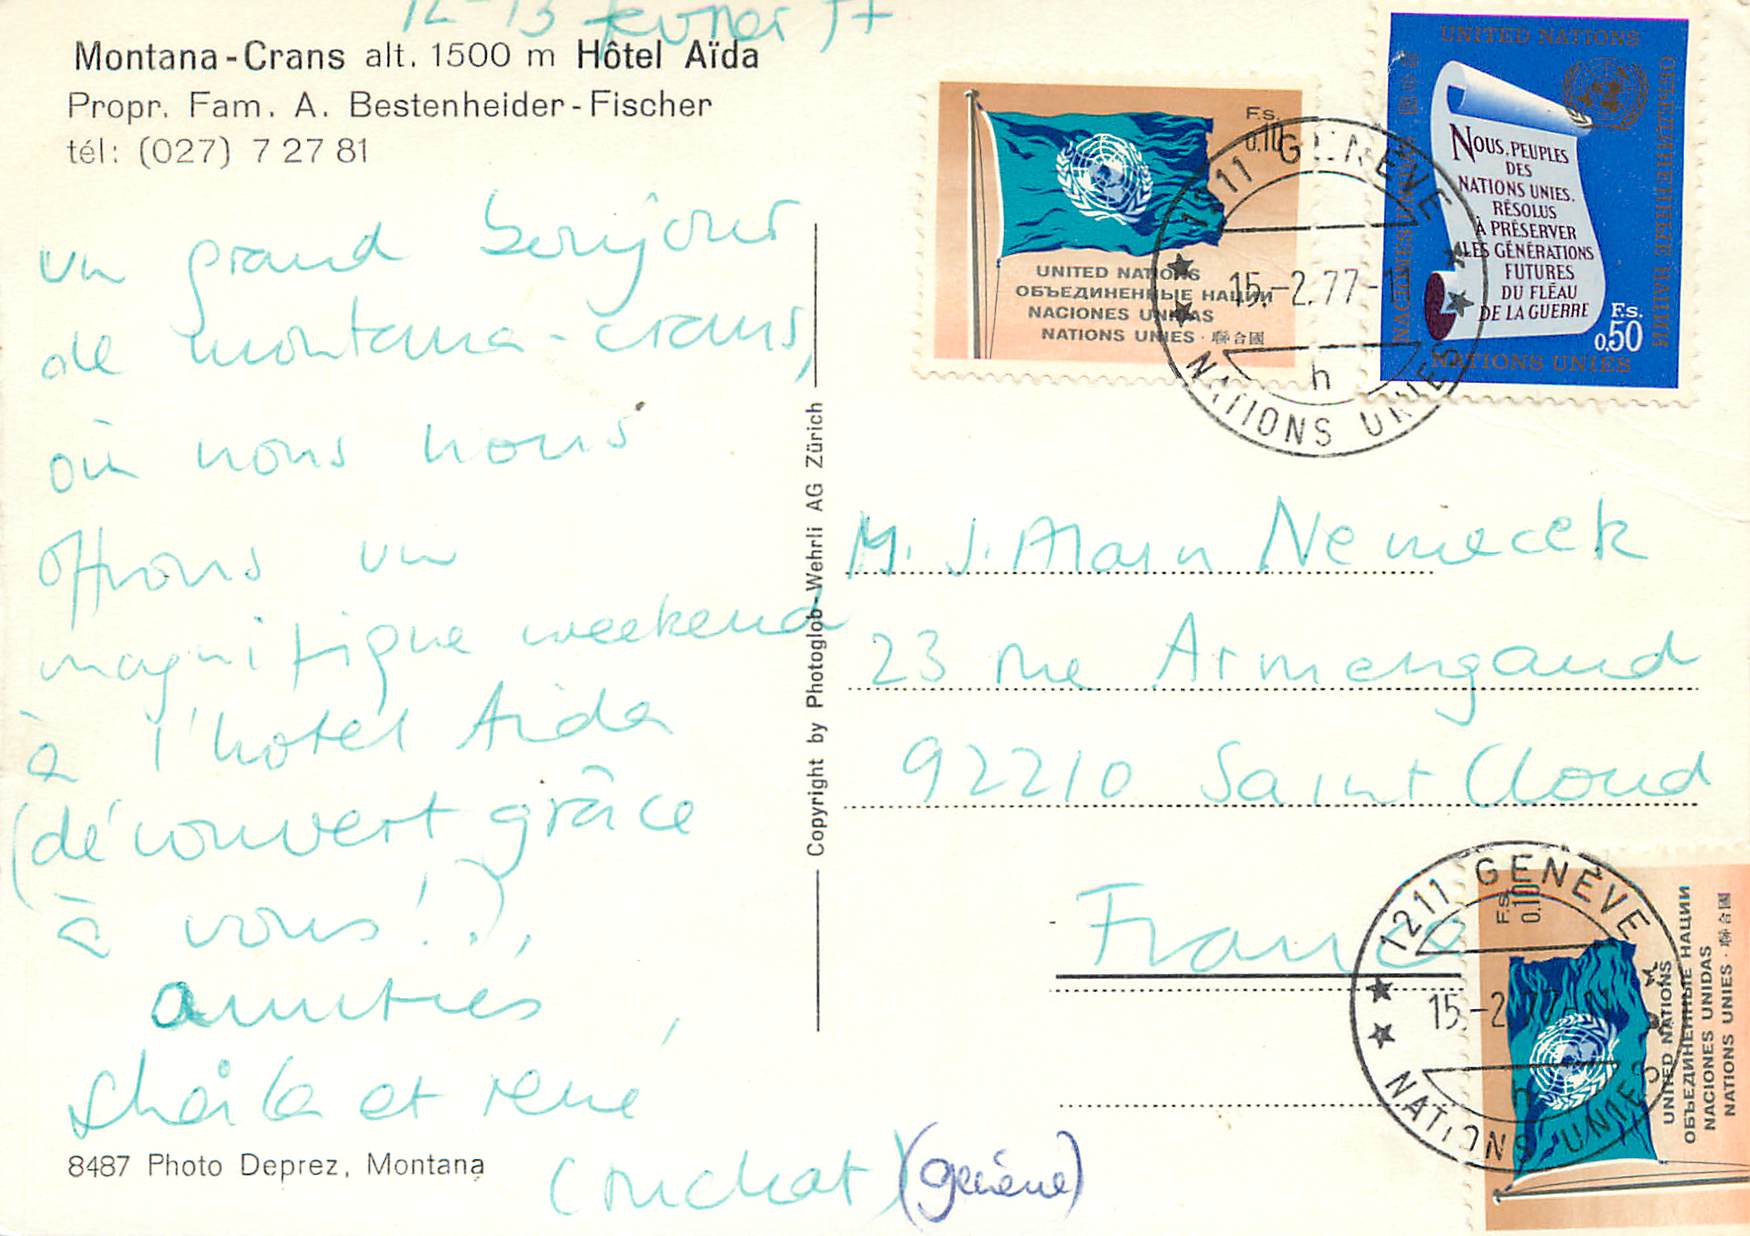 12-13 février 77
Montana-Crans alt. 1500 m Hôtel Aïda
Propr. Fam. A. Bestenheider-Fischer
tél: (027) 7 27 81
un grand bonjour
de montana-crans,
où nous nous
offrons un
magnifique weekend
à l'hotel Aïda
(découvert grâce
à vous!),
amitiés,
Sheila et rené
(michat) (genève)
8487 Photo Deprez, Montana
Copyright by Photoglob-Wehrli AG Zürich
Fs.
0.10
UNITED NATIONS
ОБЪЕДИНЕННЫЕ НАЦИИ
NACIONES UNIDAS
NATIONS UNIES · 聯合國
1211 GENÈVE
15.-2.77-1
h
NATIONS UNIES
UNITED NATIONS
NOUS, PEUPLES
DES
NATIONS UNIES,
RÉSOLUS
À PRÉSERVER
LES GÉNÉRATIONS
FUTURES
DU FLÉAU
DE LA GUERRE
F.s.
0.50
NATIONS UNIES
NACIONES UNIDAS
ОБЪЕДИНЕННЫЕ НАЦИИ
M. J. Alain Nemecek
23 rue Armengaud
92210 Saint Cloud
France
1211 GENÈVE
15.-2.77
NATIONS UNIES
Fs.
0.10
UNITED NATIONS
ОБЪЕДИНЕННЫЕ НАЦИИ
NACIONES UNIDAS
NATIONS UNIES · 聯合國